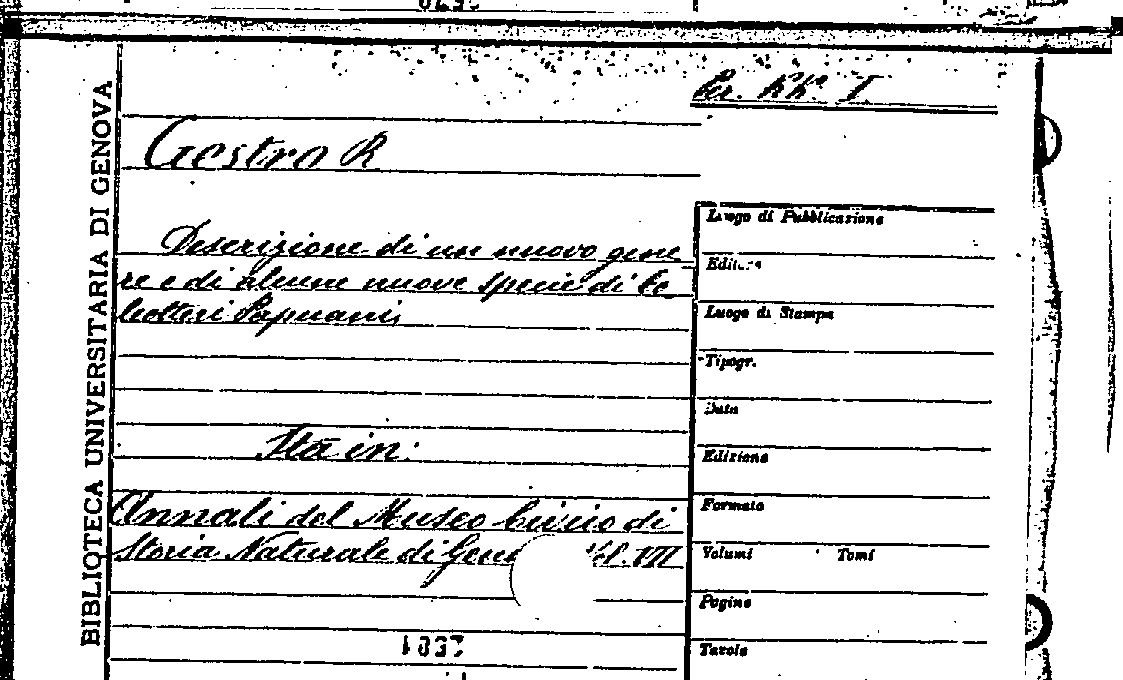 BIBLIOTECA UNIVERSITARIA DI GENOVA
Per. KK. I
Gestro R
Descrizione di un nuovo gene
re e di alcune nuove specie di Co
leotteri Papuani
Sta in:
Annali del Museo Civico di
Storia Naturale di Gen Vol. VII
Luogo di Pubblicazione
Luogo di Stampa
Tipogr.
Data
Edizione
Formato
Volumi Tomi
Pagine
Tavole